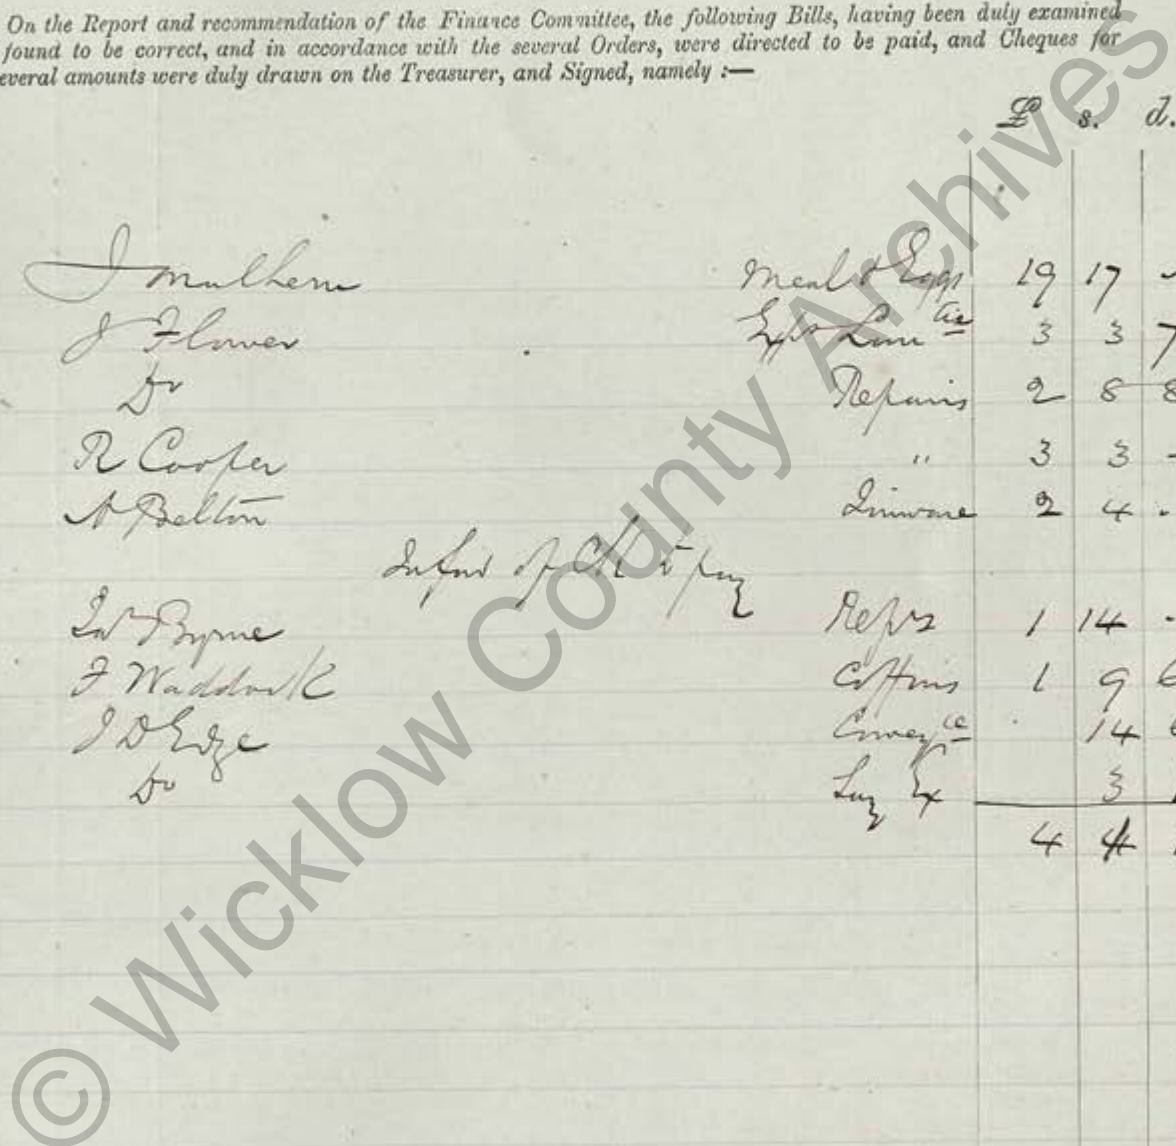 On the Report and recommendation of the Finance Committee, the following Bills, having been duly examined
found to be correct, and in accordance with the several Orders, were directed to be paid, and Cheques for
everal amounts were duly drawn on the Treasurer, and Signed, namely :—
£ s. d.
J Mulhern Meal & Eggs 19 17 -
J Flower Exps 3 3 7
Do Repairs 2 8 8
R Cooper " 3 3 -
A Belton Tinware 2 4 -
In favr of Clk to pay
Jas Byrne Reprs 1 14 -
F Waddock Coffins 1 9 6
J D Edge Conveyce 14
Do Ex 3
4 4
© Wicklow County Archives